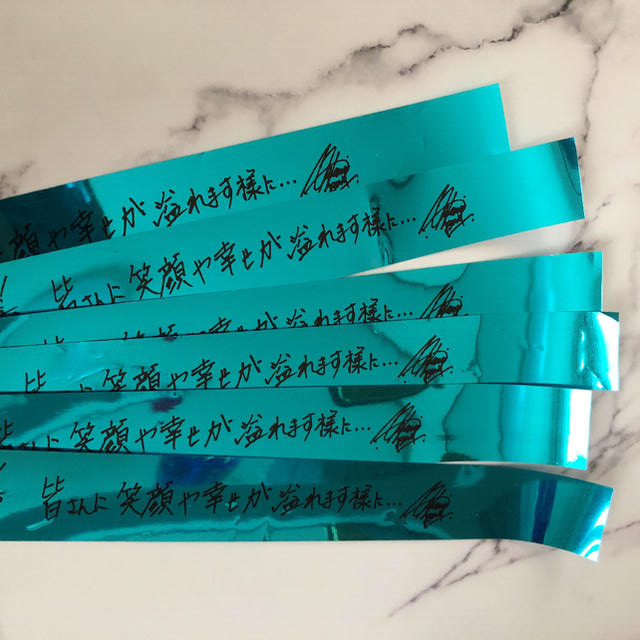 顔や幸せが溢れます様に…
皆さんに笑顔や幸せが溢れます様に…
が溢れます様に…
皆 に笑顔や幸せが溢れます様に…
さんに笑顔や幸せが溢れます様に…
皆さんに笑顔や幸せが溢れます様に…